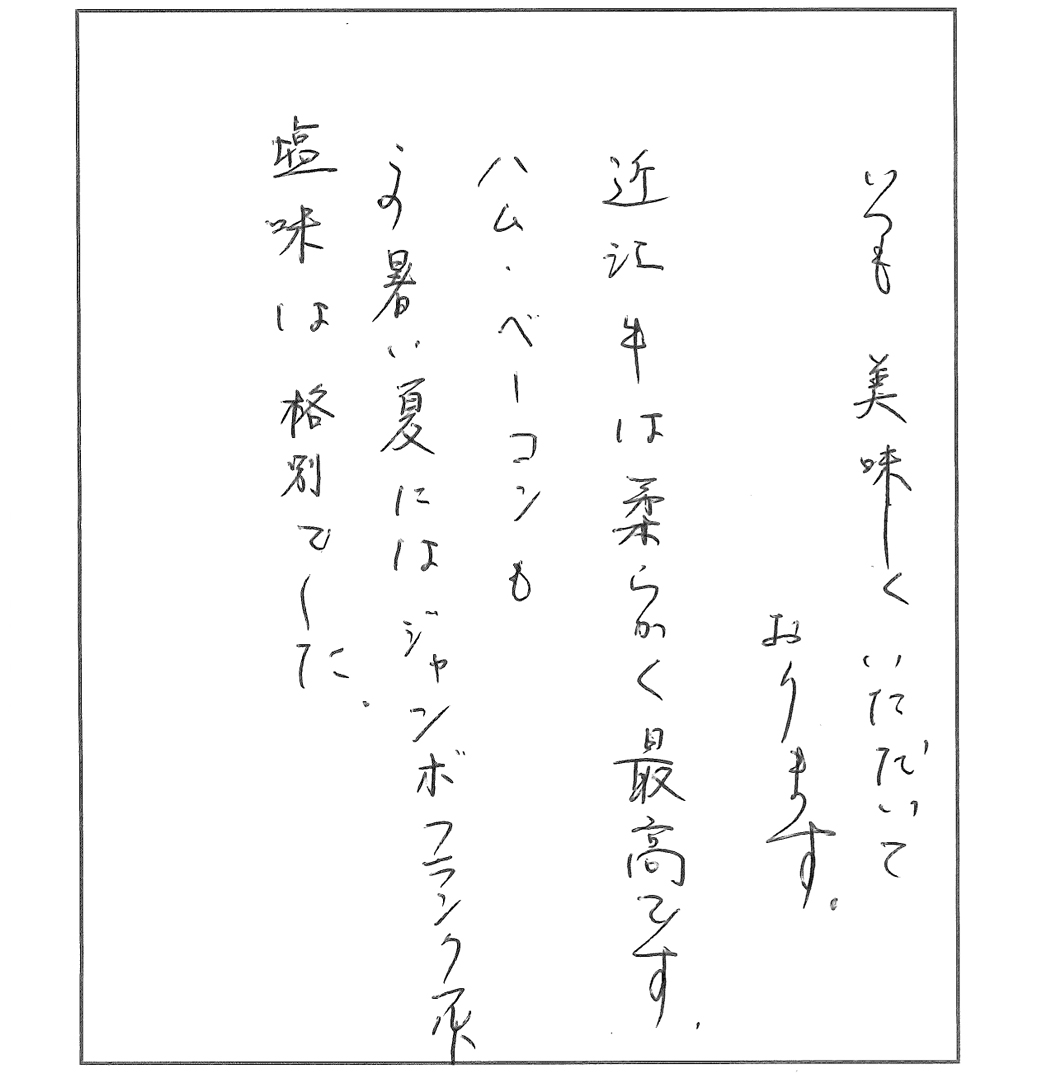 いつも 美味しくいただいて
おります。
近江牛は柔らかく最高です.
ハム・ベーコンも
暑い夏にはジャンボフランク
塩味は格別でした.